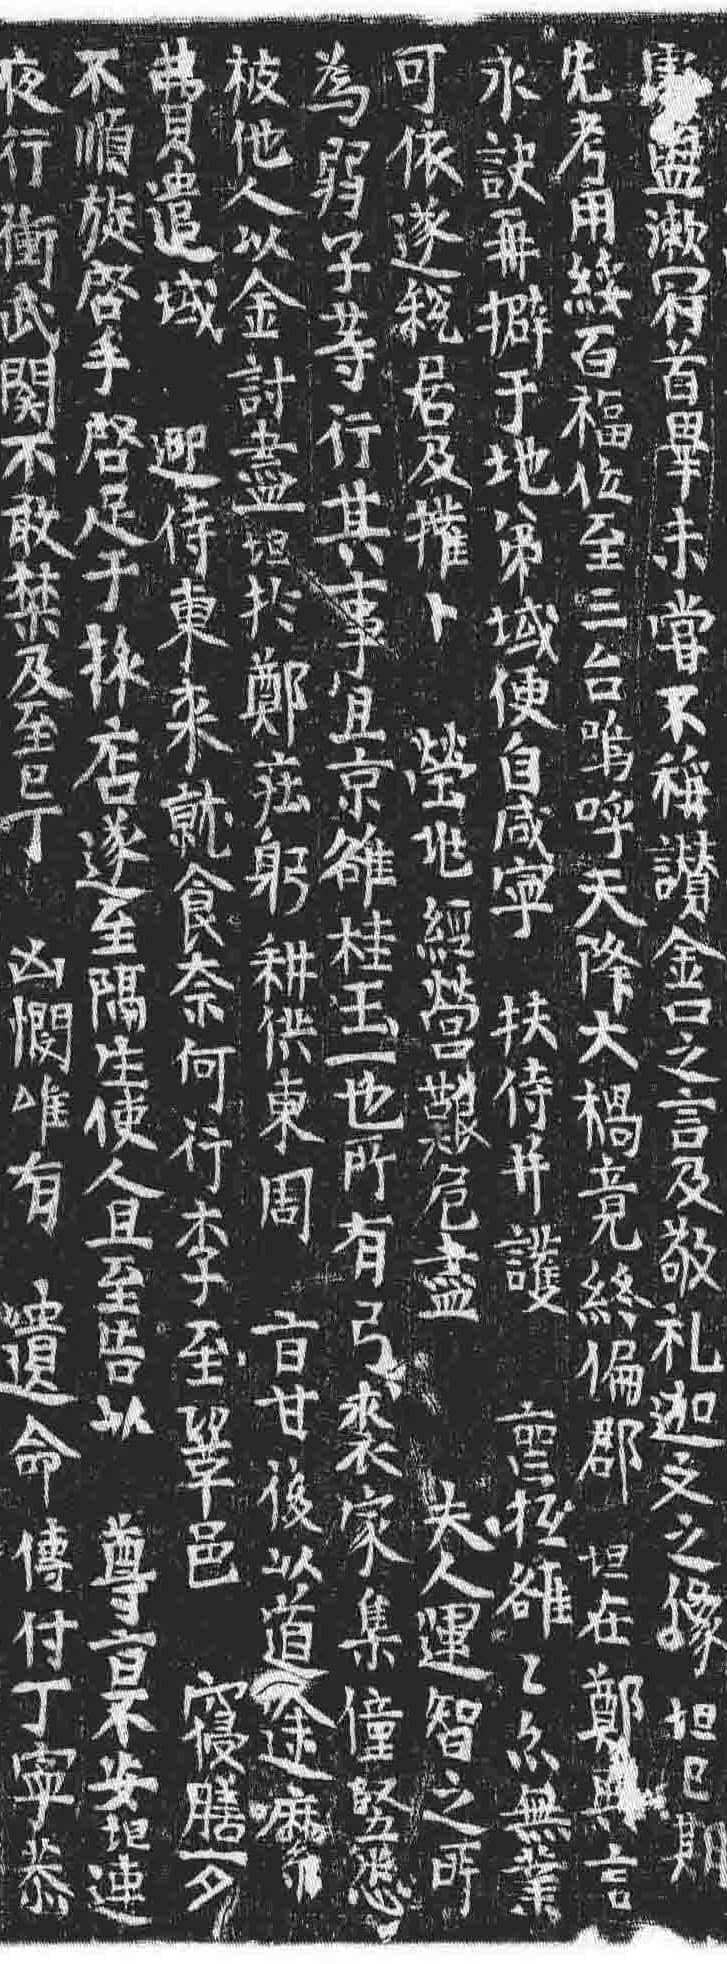 盥漱冠首畢未嘗不稱讃金口之言及敬礼迦文之像坦已期
先考用綏百福位至三台嗚呼天降大禍竟終偏郡坦在鄭言
永訣再擗于地第域便自咸寧扶侍井護櫬雖乞尔無業
可依遂税居及攉卜塋地經營艱危盡夫人運智之所
為弱子等行其事宜京雒桂玉一也所有弓裘家集僮竪悉
被他人以金討盡坦於鄭莊躬耕供東周旨甘後以道途
費遣域迎侍東来就食奈何行李至鞏邑寢膳一夕
不順旋啓手啓足于旅店遂至隔生使人且至告以尊旨不安坦連
夜行衝武関不敢禁及至已丁凶憫唯有遺命傳付丁寧恭